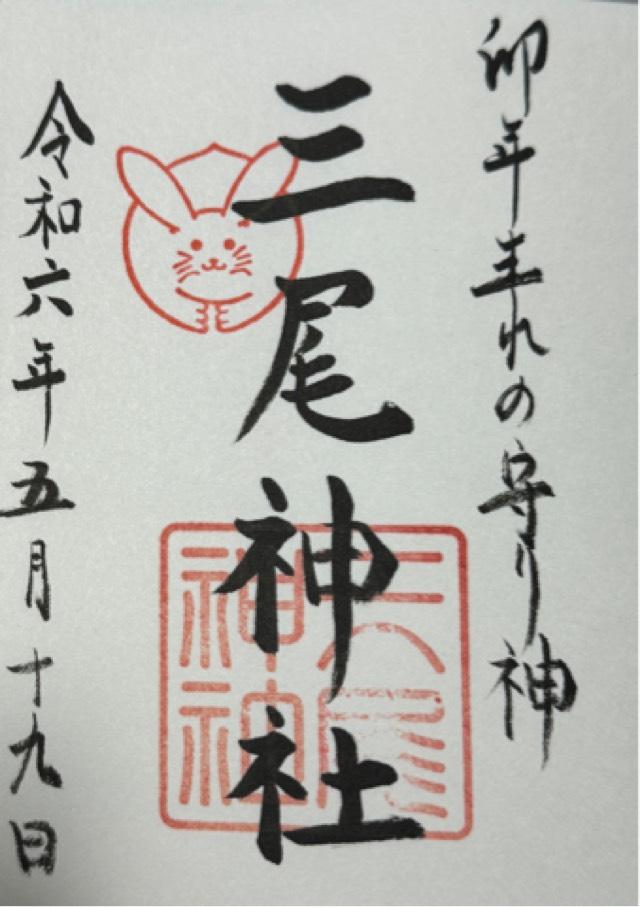 卯年生れの守り神
三尾神社
令和六年五月十九日